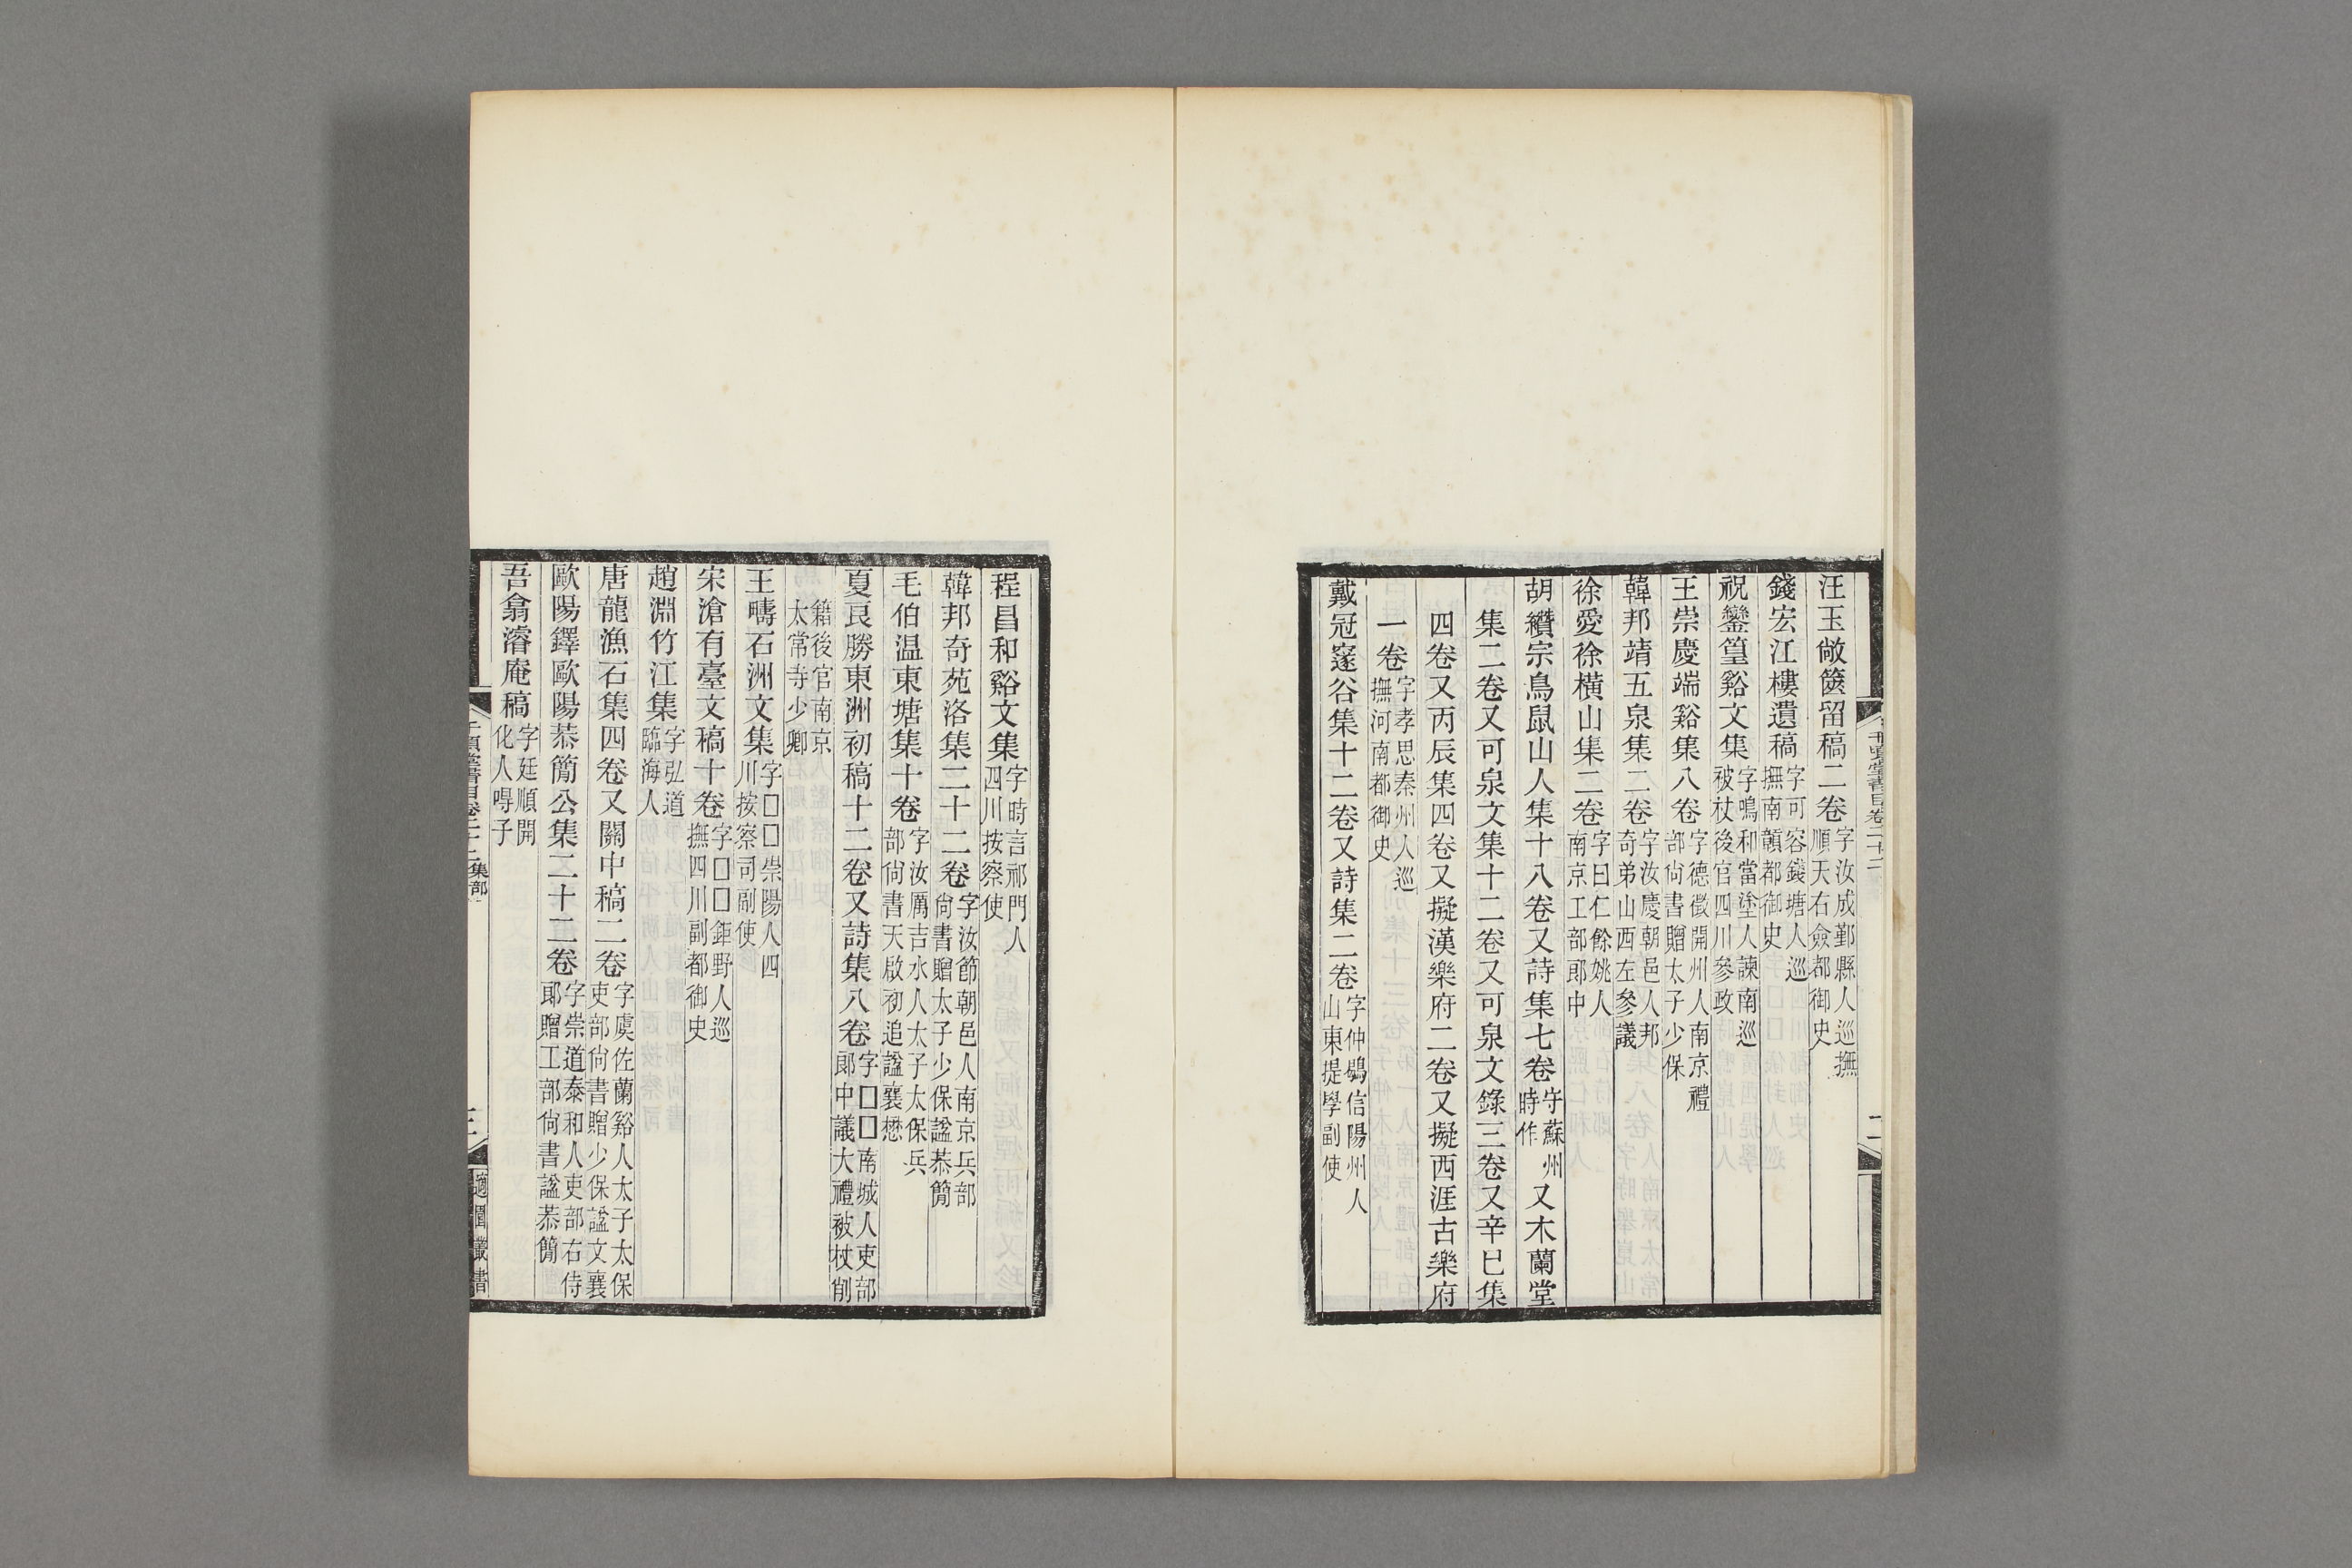 汪玉敞篋留稿二卷字汝成鄞縣人巡撫順天右僉都御史
錢宏江樓遺稿字可容錢塘人巡撫南贛都御史
祝鑾篁谿文集字鳴和當塗人諫南巡被杖後官四川參政
王崇慶端谿集八卷字德徵開州人南京禮部尙書贈太子少保
韓邦靖五泉集二卷字汝慶朝邑人邦奇弟山西左參議
徐愛徐橫山集二卷字曰仁餘姚人南京工部郎中
胡纘宗鳥鼠山人集十八卷又詩集七卷守蘇州時作又木蘭堂
集二卷又可泉文集十二卷又可泉文錄三卷又辛巳集
四卷又丙辰集四卷又擬漢樂府二卷又擬西涯古樂府
一卷字孝思秦州人巡撫河南都御史
戴冠邃谷集十二卷又詩集二卷字仲鶡信陽州人山東提學副使
程昌和谿文集字時言祁門人四川按察使
韓邦奇苑洛集二十二卷字汝節朝邑人南京兵部尙書贈太子少保諡恭簡
毛伯温東塘集十卷字汝厲吉水人太子太保兵部尙書天啟初追諡襄懋
夏良勝東洲初稿十二卷又詩集八卷字□□南城人吏部郎中議大禮被杖削
籍後官南京太常寺少卿
王疇石洲文集字□□崇陽人四川按察司副使
宋滄有臺文稿十卷字□□鉅野人巡撫四川副都御史
趙淵竹江集字弘道臨海人
唐龍漁石集四卷又關中稿二卷字虞佐蘭谿人太子太保吏部尙書贈少保諡文襄
歐陽鐸歐陽恭簡公集二十二卷字崇道泰和人吏部右侍郎贈工部尙書諡恭簡
吾翕濬庵稿字廷順開化人㝵子
千頃堂書目卷二十二 集部
適園叢書